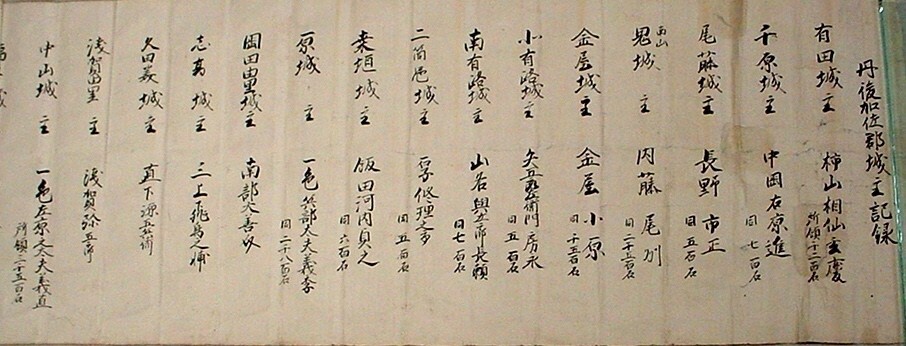 丹後加佐郡城主記録
有田城主 柿山相仙玄慶 所領千二百石
千原城主 中岡右京進 同七百石
尾藤城主 長野市正 同五石
西山 鬼城主 内藤尾州 同二千五百石
金屋城主 金屋小原 同千五百石
小有路城主 矢五郎左衛門房永 同五百石
南有路城主 山名與五郎長頼 同七百石
二箇城主 修理之亮 同五百石
桒垣城主 飯田河内貝之 同六百石
原城主 一色兵部太夫義孝 同二千八百石
岡田由里城主 南部大吉
志高城主 三上
矢田 城主 真下源五
浅賀由里主 浅賀弥五郎
中山城主 一色左京之太夫義直 所領二千五百石